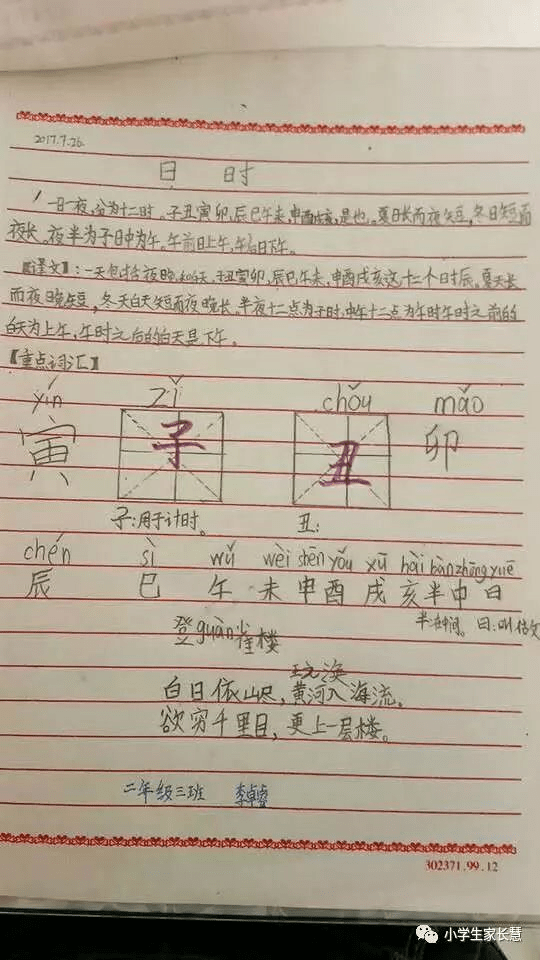 2017.7.26
日 时
一日一夜,分为十二时。子丑寅卯,辰巳午未,申酉戌亥,是也。夏日长而夜短,冬日短而
夜长。夜半为子日中为午。午前曰上午,午后曰下午。
【译文】:一天包括夜晚和白天,子丑寅卯,辰巳午未,申酉戌亥这十二个时辰。夏天长
而夜晚短,冬天白天短而夜晚长。半夜十二点为子时,中午十二点为午时午时之前的
白天为上午,午时之后的白天是下午。
【重点词汇】
yín zǐ chǒu mǎo
寅 子 丑 卯
子:用于计时。 丑:
chén sì wǔ wèi shēn yǒu xū hài bàn zhōng yuē
辰 巳 午 未 申 酉 戌 亥 半 中 曰
半:中间。曰:叫
登guàn雀楼
王
白日依山尽,黄河入海流。
欲穷千里目,更上一层楼。
二年级三班 李卓睿
302371.99.12
小学生家长慧